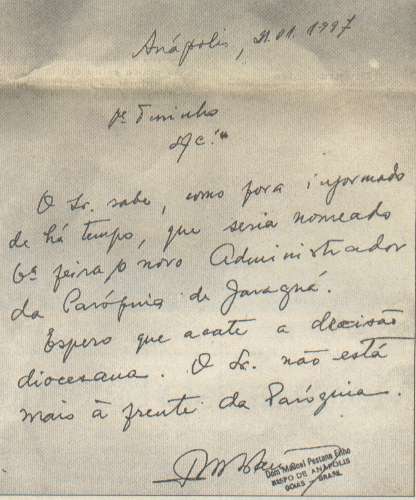 Anápolis, 21.01.1997
Pe. Tininho
O Sr. sabe, como fora informado
de há tempo, que seria nomeado
6ª feira o novo Administrador
da Paróquia de Jaraguá.
Espero que acate a decisão
diocesana. O Sr. não está
mais à frente da Paróquia.
Dom Manoel Pestana Filho
BISPO DE ANÁPOLIS
GOIÁS BRASIL